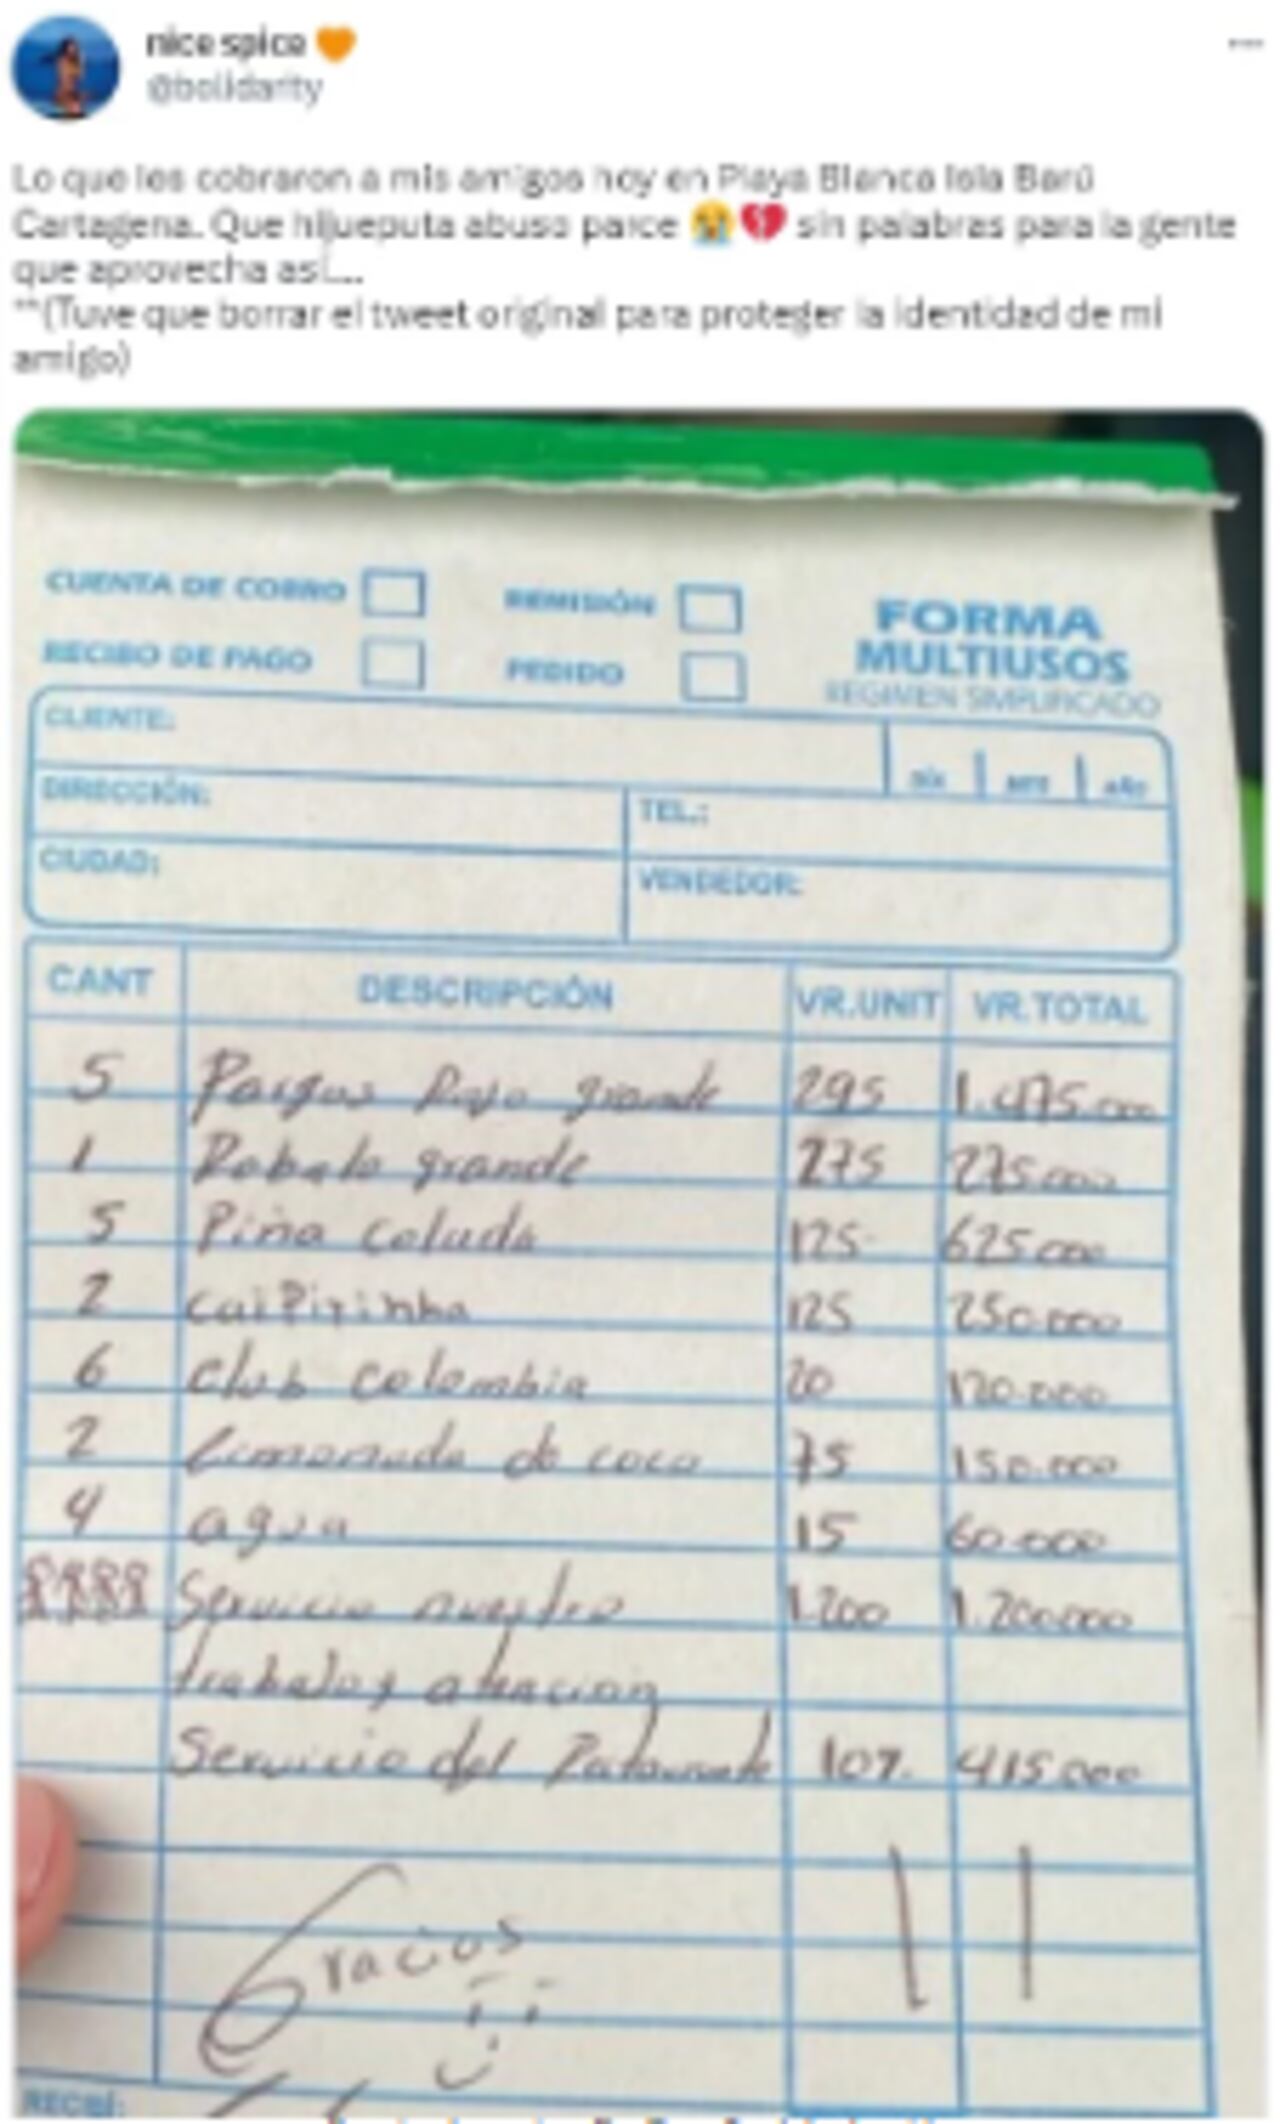 nice spice 🧡
@bolidarity
Lo que les cobraron a mis amigos hoy en Playa Blanca Isla Barú
Cartagena. Que hijueputa abuso parce 😭💔 sin palabras para la gente
que aprovecha así....
**(Tuve que borrar el tweet original para proteger la identidad de mi
amigo)
CUENTA DE COBRO REMISIÓN FORMA
RECIBO DE PAGO PEDIDO MULTIUSOS
REGIMEN SIMPLIFICADO
CLIENTE: DÍA MES AÑO
DIRECCIÓN: TEL.:
CIUDAD: VENDEDOR:
CANT DESCRIPCIÓN VR.UNIT VR.TOTAL
5 Pargos Rojo grande 295 1.475.000
1 Robalo grande 275 275.000
5 Piña colada 125 625.000
2 caipirinha 125 250.000
6 club colombia 20 120.000
2 Limonada de coco 75 150.000
4 agua 15 60.000
Servicio nuestro 1.200 1.200.000
trabajo y atencion
Servicio del 10%. 415.000
Gracias
RECIBÍ: